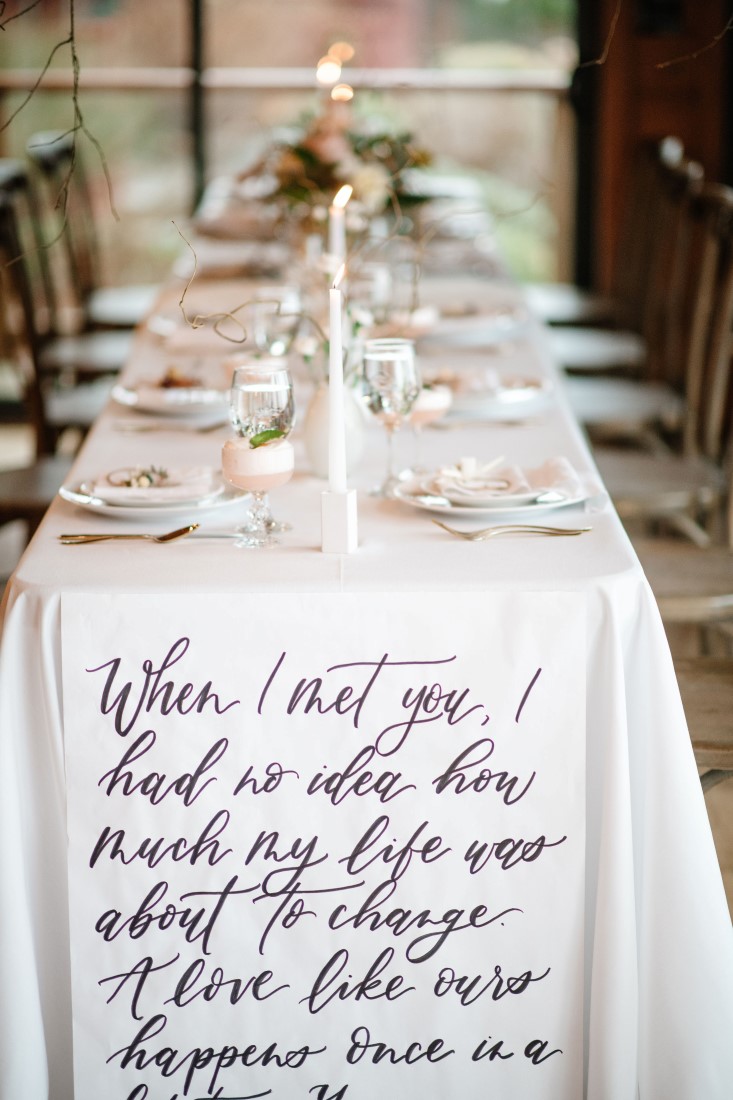 When I met you, I
had no idea how
much my life was
about to change.
A love like ours
happens once in a